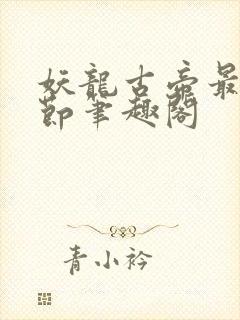 妖龍古帝最
節筆趣閣
青小衿